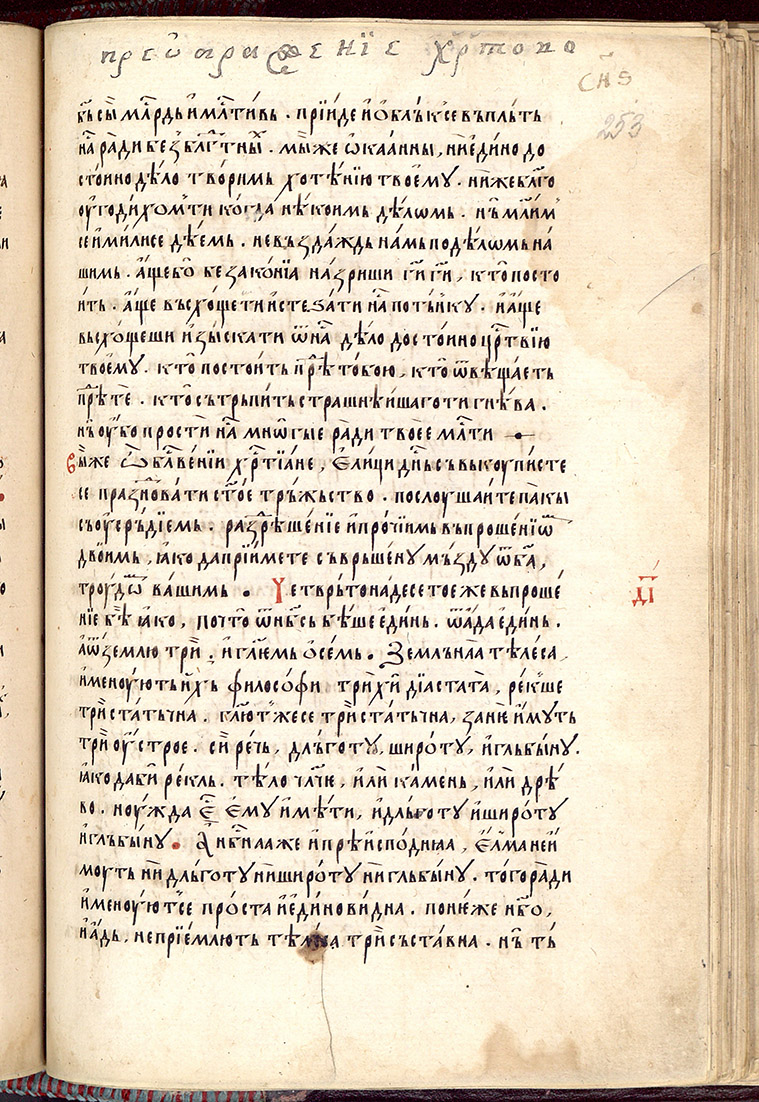 преѡбраженїе хр҇тово
сн҃ѕ
253
бъ҃ сы́ мл҇рдь и҆ мл҇тивь . прїи́де и҆ ѡ҆блъ́ксе въ плъть
на҇ ра́ди беꙁ бл҃г҇тны̏х . мы́же ѡ҆каа́нны, ни є҆ди́но до
сто́ино дѣ́ло тво́римь хотѣ́нїю твоє҆мꙋ . ни́же бл҃го
оу҆годи́хом ти когда̀ нѣ́коимь дѣ́лѡмь . нъ мл҇и́м
се и҆ ми́лисе дѣ́емь . не въꙁда́ждь на́мь по дѣ́лѡмь на́
шимь . а҆́щебо̀ беꙁако́нїа на́ꙁриши г҃и г҃и, кто̀ посто
и́ть . а҆́ще въсхо́щети и҆стеꙁа́ти на҇ по тъ́нкꙋ . и҆ а҆́ще
въсхо́щеши и҆ꙁы́скати ѿ на҇ дѣ́ло досто́ино цр҇твїю
твоє҆мꙋ . кто̀ постои́ть прѣ҇ тобо́ю, кто̀ ѿвѣща́еть
прѣ҇ те . кто̀ сътръпи́ть страшнѣ́ишаго ти гнѣ́ва .
нъ оу҆́бо прости̏ на҇ мнѡ́гые ра́ди твоѐе мл҇ти
Вы́же ѡ҆ бл҇ве́нїи хр҇тїа́не, є҆ли́ци дн҇ь съвькоупи́сте
се праꙁ҇нова́ти ст҃ое тръ́жьство . послоу́шаите па́кы
съ оу҆се́рдїемь . раꙁрѣше́нїе и҆ про́чїимь въпроше́нїѡ
дво́имь, ꙗ҆́ко да прїи́мете съврьше́нꙋ мъ́ꙁдꙋ ѿ ба҃,
троудѡ́ ва́шимь . Четврьтонадесе́тое же въпроше́
нїе бѣ҇ ꙗ҆́ко, почто̀ ѿ нбⷭсь бѣ́ше є҆ди́нь . ѿ а҆́да є҆ди́нь .
а҆ ѿ ꙁемлю̀ три̏ . и҆ гл҃емь ѻ҆́семь . Ꙁемлъ́наа тѣ́леса,
и҆меноу́ють и҆хъ филосо́фи три́хи̏ дїа́стата, ре́кꙋще
три̏ста́тьчна . гл҃ют же се три̏ста́тьчна, ꙁане̏ и҆́мꙋть
три̏ оу҆стро́е . си̏ ре́чь, длъготꙋ̀, широ́тꙋ, и҆ глъбы́нꙋ .
ꙗ҆́ко да би̏ ре́кль . тѣ́ло чл҃чю, и҆лѝ ка́мень, и҆лѝ дрѣ́
во . ноу́жда є҇ є҆мꙋ и҆мѣ́ти, и҆ длъготꙋ̀ и҆ широ́тꙋ
и҆ глъбы́нꙋ . А҆ нбⷭнаа же и҆ прѣи́споднꙗа, є҆́лма не и҆́
моуть ни̏ длъготꙋ̀ ни̏ широ́тꙋ ни̏ глъбы́нꙋ . того̀ ра́ди
и҆меноу́ют се про́ста и҆ є҆динови́дна . поне́же нб҃о,
и҆ а҆́дь, непрїе́млють тѣ́леса три̏съста́вна . нъ тъ́
д҃і